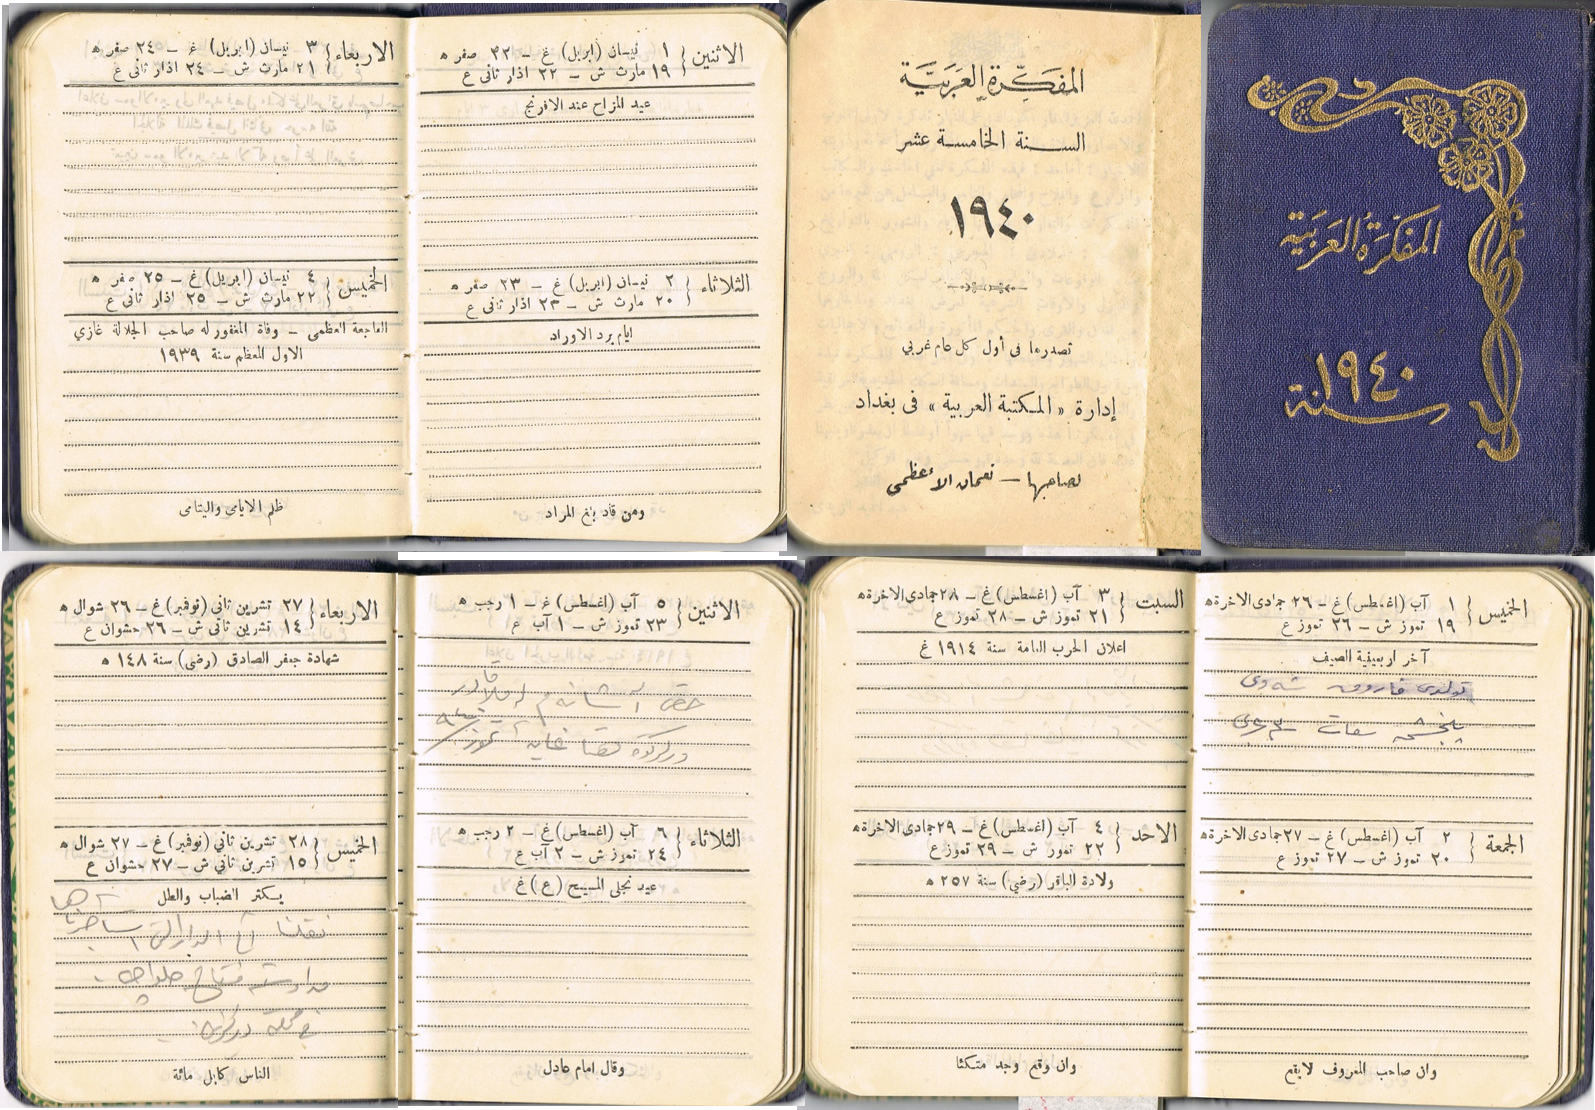 المفكرة العربية
سنة ١٩٤٠
المفكرة العربية
السنة الخامسة عشر
١٩٤٠
تصدرها في أول كل عام غربي
إدارة « المكتبة العربية » فى بغداد
لصاحبها — نعمان الأعظمى
الاثنين { ١ نيسان (ابريل) غ — ٢٢ صفر ه
١٩ مارت ش — ٢٢ اذار ثانى ع
عيد المزاح عند الافرنج
الثلاثاء { ٢ نيسان (ابريل) غ — ٢٣ صفر ه
٢٠ مارت ش — ٢٣ اذار ثانى ع
ايام برد الاوراد
ومن قاد بلغ المراد
الاربعاء { ٣ نيسان (ابريل) غ — ٢٤ صفر ه
٢١ مارت ش — ٢٤ اذار ثانى ع
الخميس { ٤ نيسان (ابريل) غ — ٢٥ صفر ه
٢٢ مارث ش — ٢٥ اذار ثانى ع
الفاجعة العظمى — وفاة المغفور له صاحب الجلالة غازي
الاول المعظم سنة ١٩٣٩
ظلم الايامى واليتامى
الخميس { ١ آب (اغسطس) غ — ٢٦ جمادى الاخرة ه
١٩ تموز ش — ٢٦ تموز ع
آخر اربعينية الصيف
تولدى فاروق
الجمعة { ٢ آب (اغسطس) غ — ٢٧ جمادى الاخرة ه
٢٠ تموز ش — ٢٧ تموز ع
وان صاحب المعروف لايقع
السبت { ٣ آب (اغسطس) غ — ٢٨ جمادى الاخرة ه
٢١ تموز ش — ٢٨ تموز ع
اعلان الحرب العامة سنة ١٩١٤ غ
الاحد { ٤ آب (اغسطس) غ — ٢٩ جمادى الاخرة ه
٢٢ تموز ش — ٢٩ تموز ع
ولادة الباقر (رضي) سنة ٢٥٧ ه
وان وقع وجد متكئا
الاثنين { ٥ آب (اغسطس) غ — ١ رجب ه
٢٣ تموز ش — ١ آب ع
الثلاثاء { ٦ آب (اغسطس) غ — ٢ رجب ه
٢٤ تموز ش — ٢ آب ع
عيد تجلى المسيح (ع) غ
وقال امام عادل
الاربعاء { ٢٧ تشرين ثاني (نوفبر) غ — ٢٦ شوال ه
١٤ تشرين ثانى ش — ٢٦ حشوان ع
شهادة جعفر الصادق (رضى) سنة ١٤٨ ه
الخميس { ٢٨ تشرين ثاني (نوفبر) غ — ٢٧ شوال ه
١٥ تشرين ثانى ش — ٢٧ حشوان ع
يكثر الضباب والطل
نقلنا الدار التي
في محلة
الناس كابل مائة